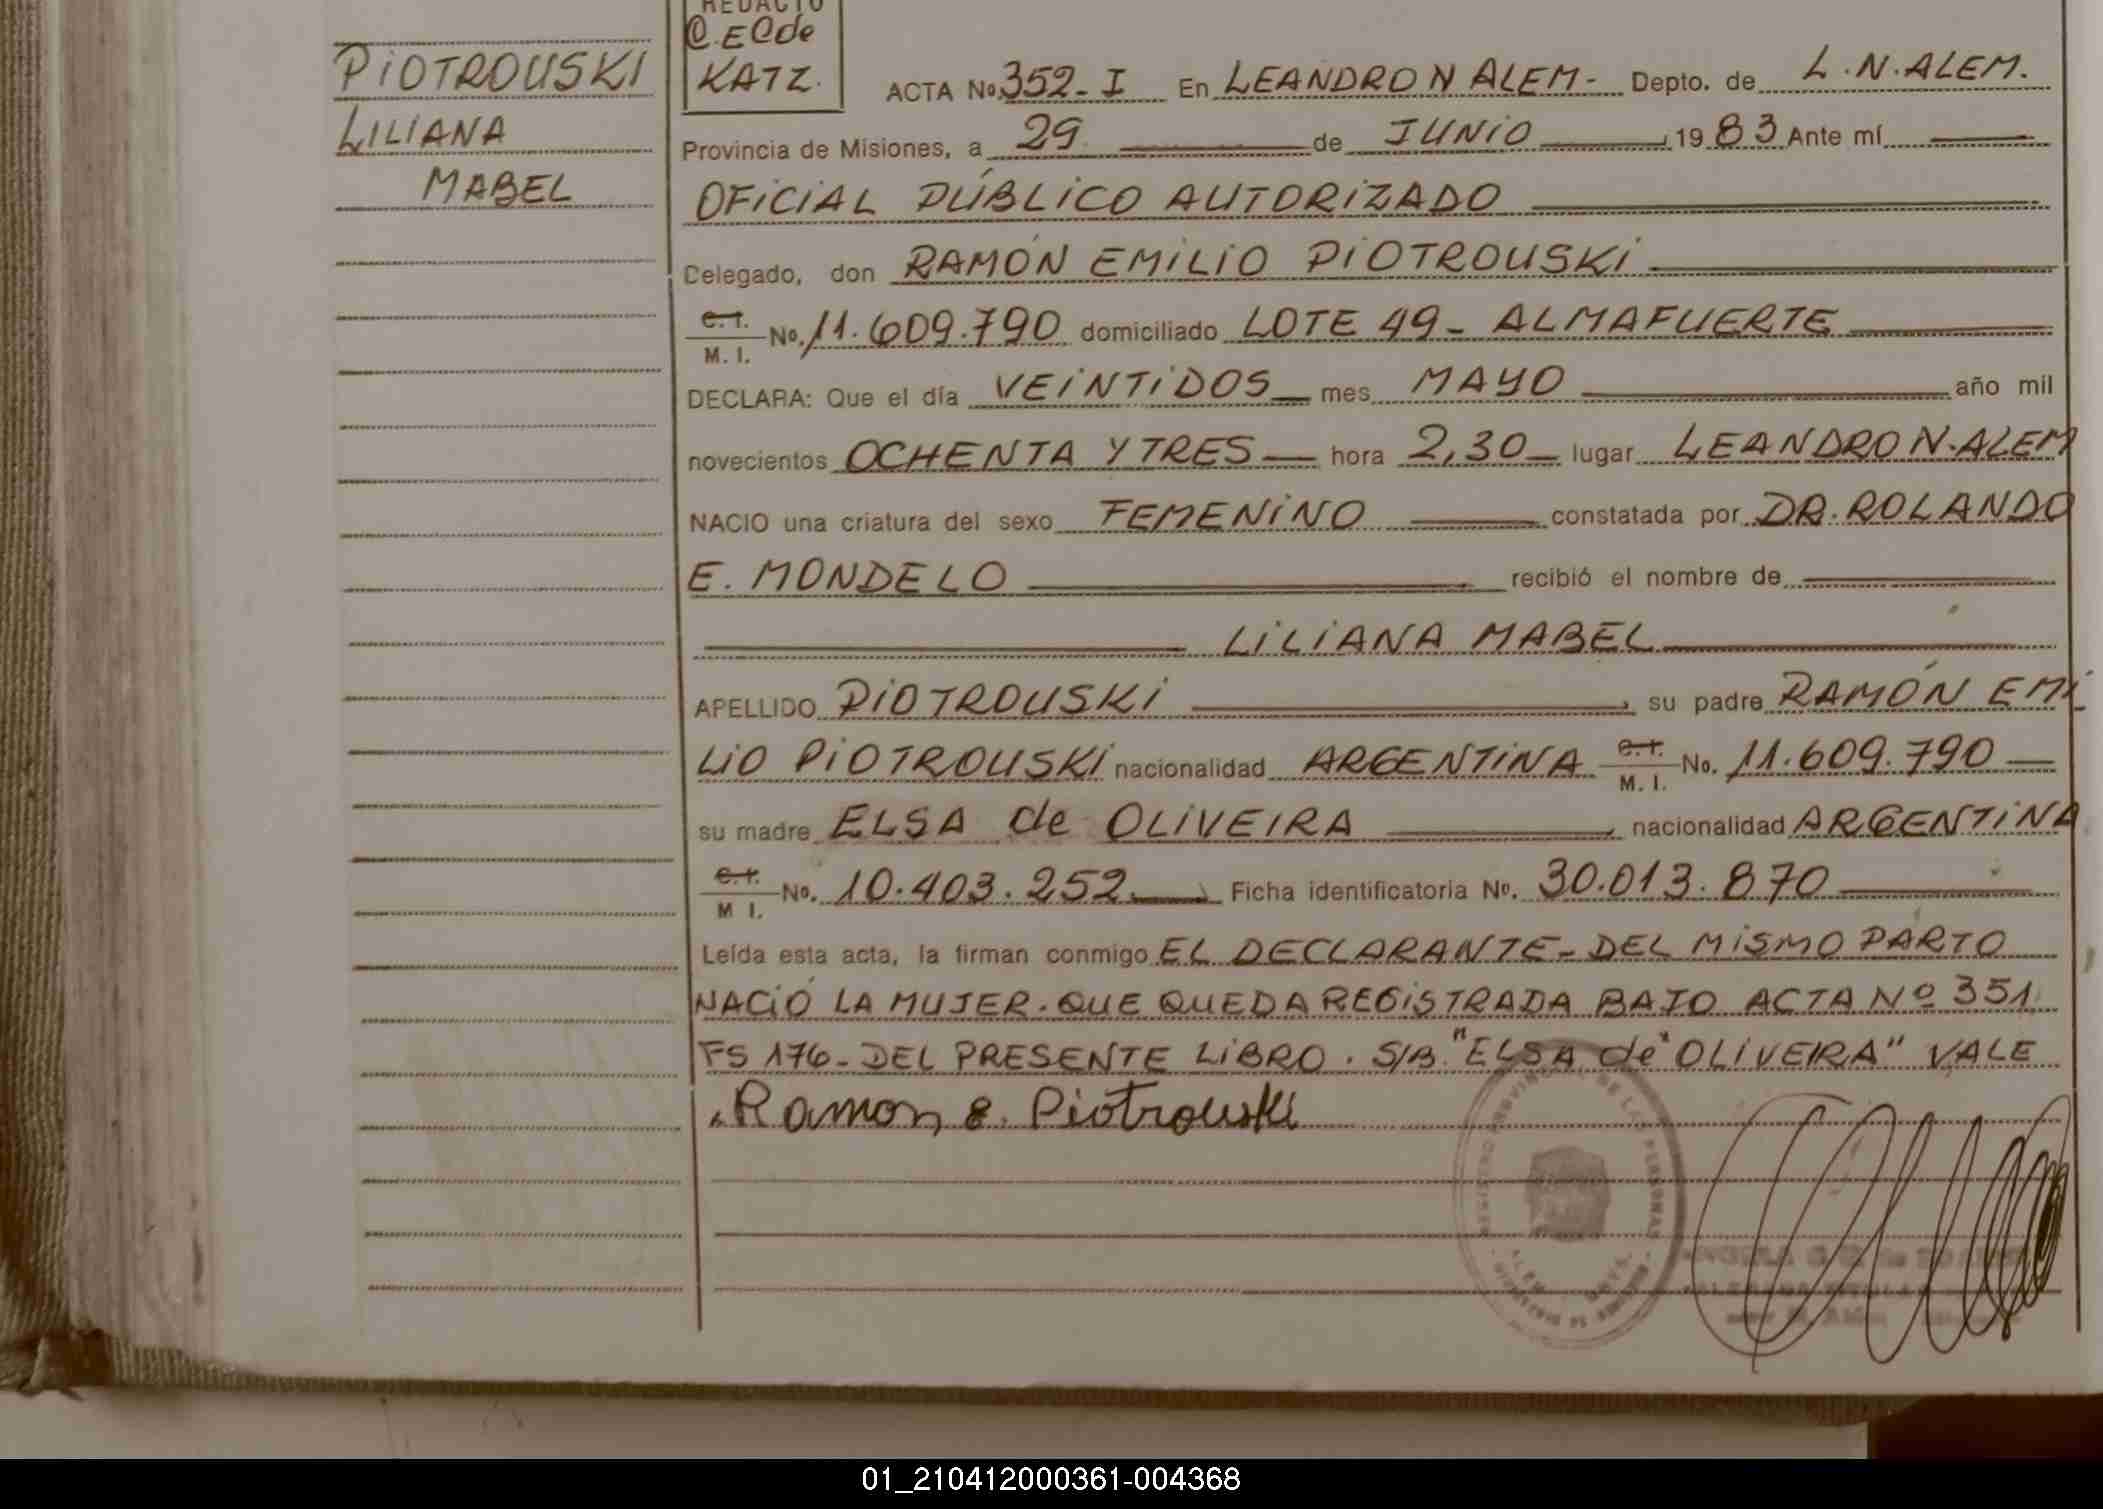 REDACTO
C. E C de
KATZ.
PIOTROUSKI
LILIANA
MABEL
ACTA No. 352 - I En LEANDRO N ALEM - Depto. de L.N.ALEM.
Provincia de Misiones, a 29 de JUNIO 1983 Ante mí
OFICIAL PÚBLICO AUTORIZADO
Delegado, don RAMÓN EMILIO PIOTROUSKI
C. I. / M. I. No. 11.609.790 domiciliado LOTE 49 - ALMAFUERTE
DECLARA: Que el día VEINTIDOS mes MAYO año mil
novecientos OCHENTA Y TRES hora 2,30 lugar LEANDRO N. ALEM
NACIO una criatura del sexo FEMENINO constatada por DR. ROLANDO
E. MONDELO recibió el nombre de
LILIANA MABEL
APELLIDO PIOTROUSKI, su padre RAMÓN EMI
LIO PIOTROUSKI nacionalidad ARGENTINA C. I. / M. I. No. 11.609.790
su madre ELSA de OLIVEIRA, nacionalidad ARGENTINA
C. I. / M I. No. 10.403.252, Ficha identificatoria No. 30.013.870
Leída esta acta, la firman conmigo EL DECLARANTE - DEL MISMO PARTO
NACIÓ LA MUJER. QUE QUEDA REGISTRADA BAJO ACTA Nº 351
FS 176 - DEL PRESENTE LIBRO. S/B. "ELSA de" OLIVEIRA" VALE
Ramon E. Piotrouski
REGISTRO PROVINCIAL DE LAS PERSONAS
01_210412000361-004368